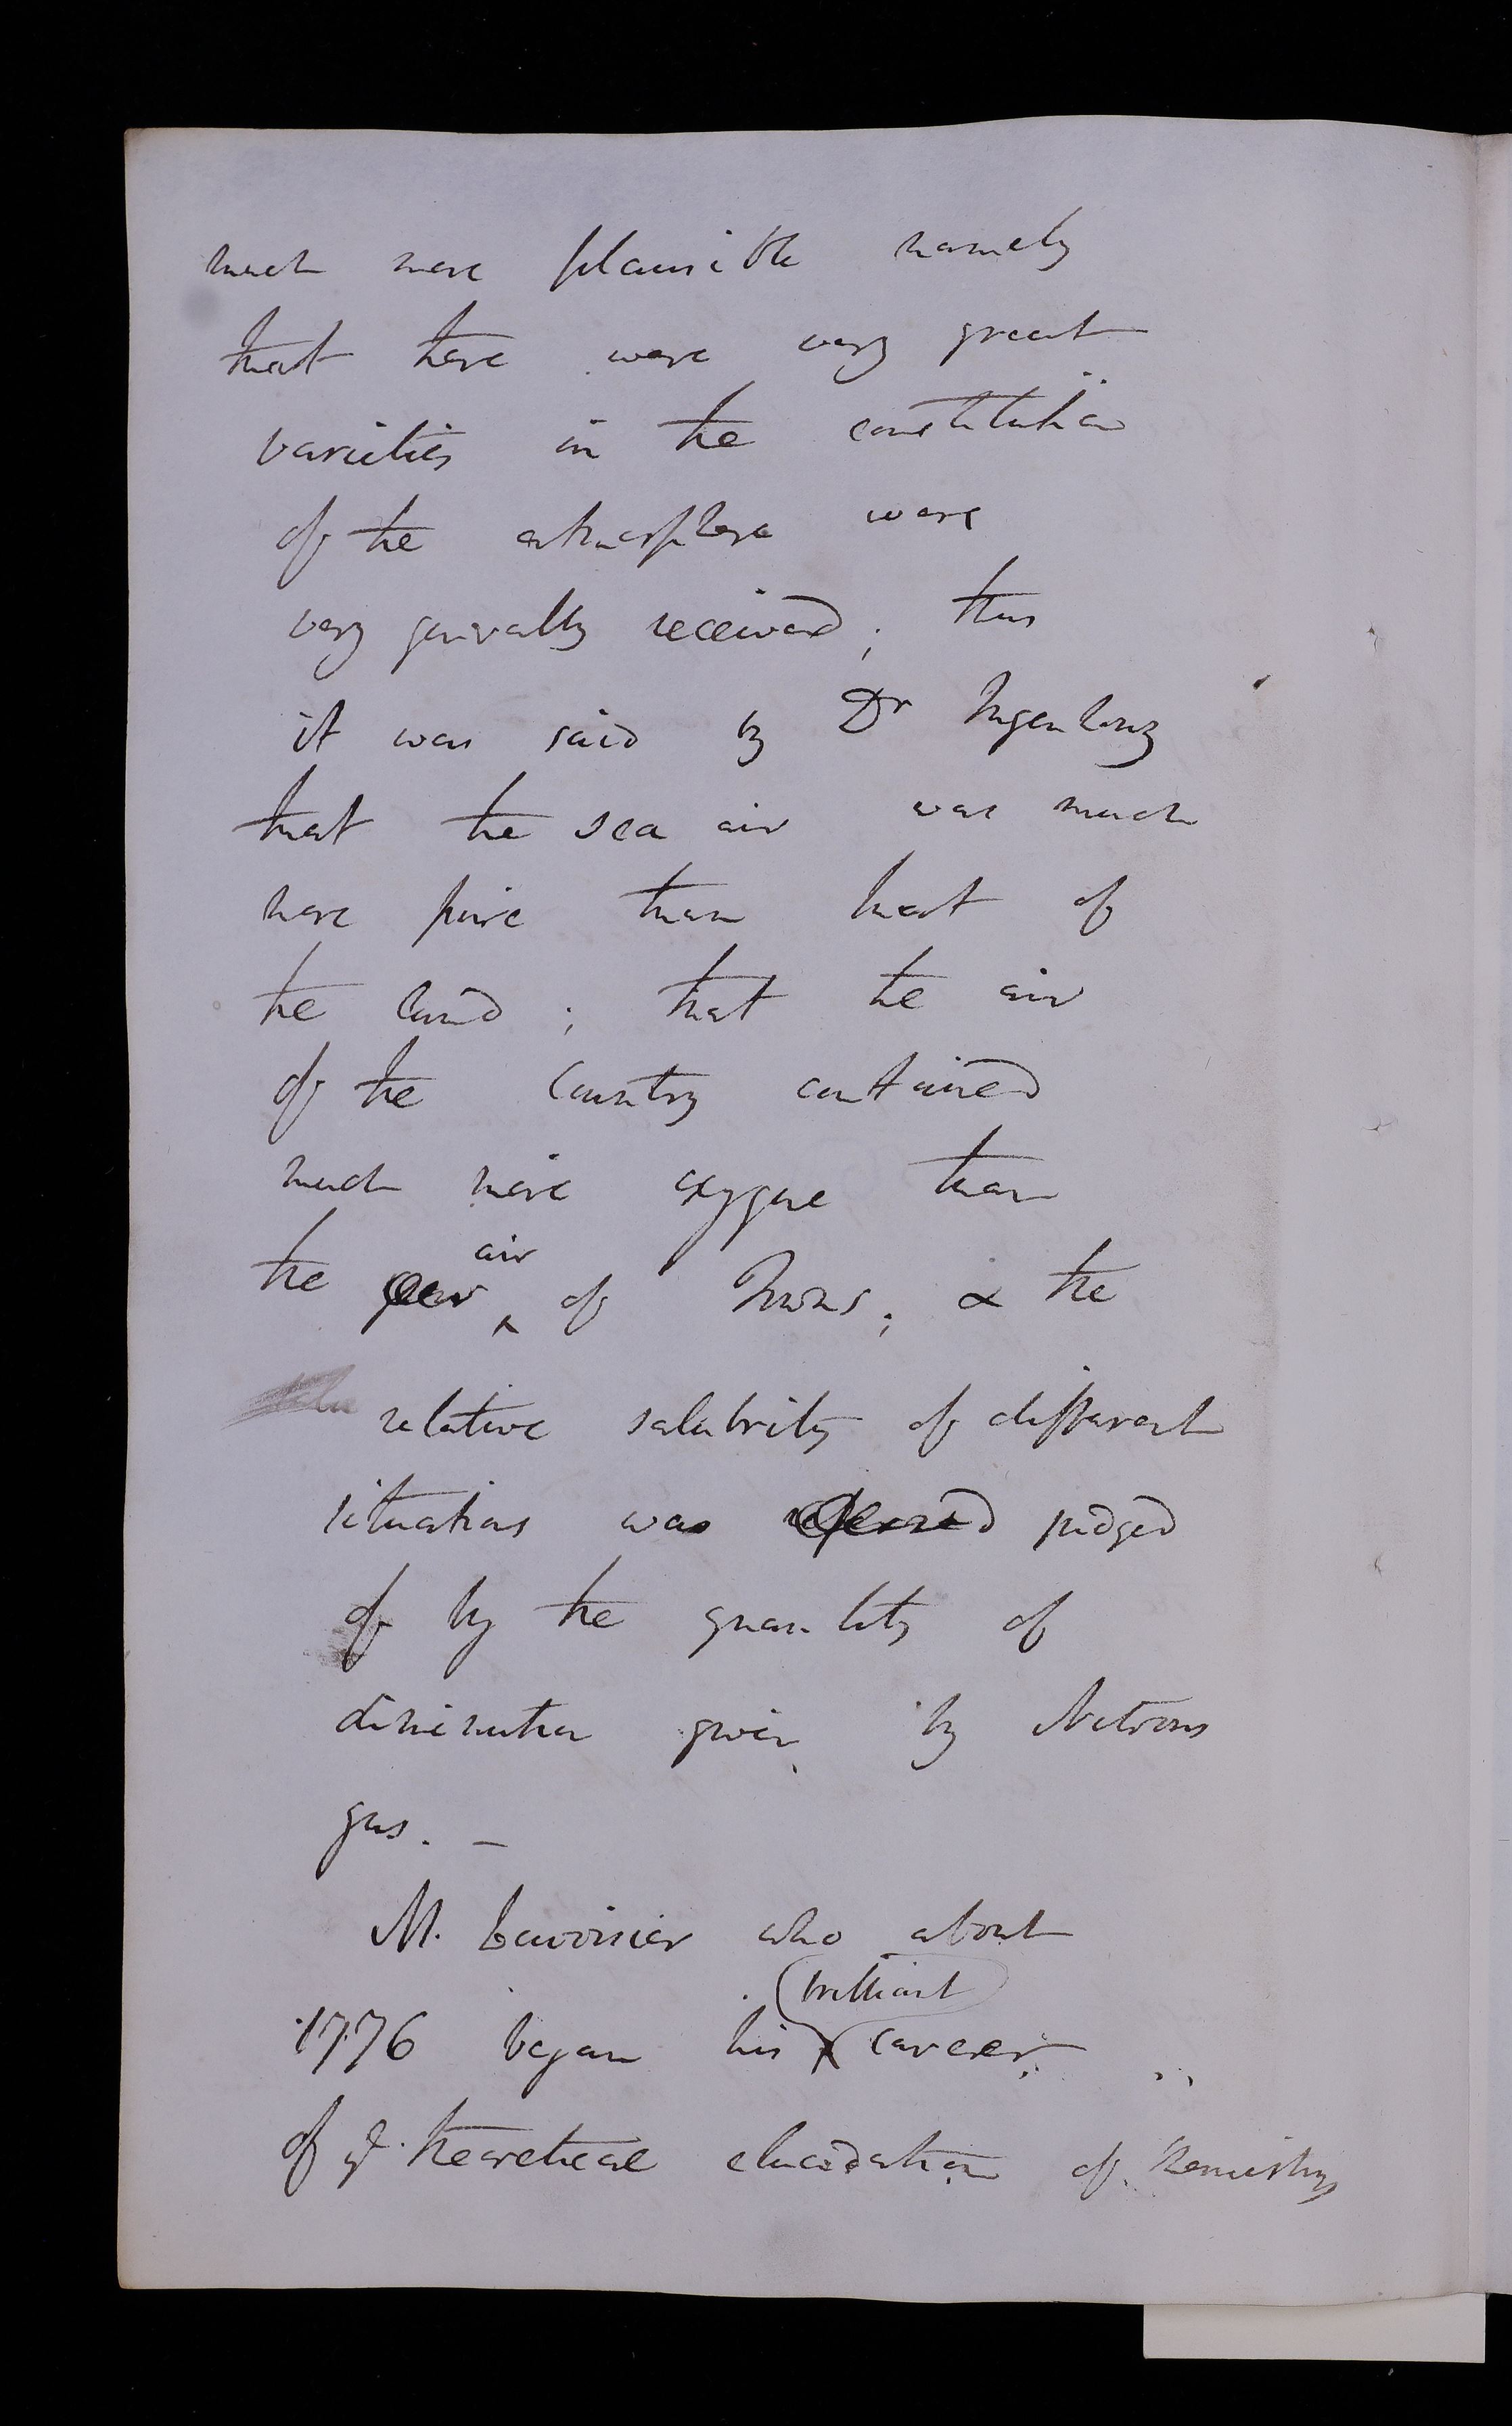 much more plausible namely
that there were very great
varieties in the constitution
of the atmosphere were
very generally received; thus
it was said by Dr Ingenhouz
that the sea air was much
more pure than that of
the land; that the air
of the Country contained
much more oxygene than
the air of Towns; & the
relative salubrity of different
situations was judged
of by the quantity of
diminution given by Nitrous
gas. -
M. Lavoisier who about
brilliant
1776 began his career
of theoretical elucidation of Chemistry